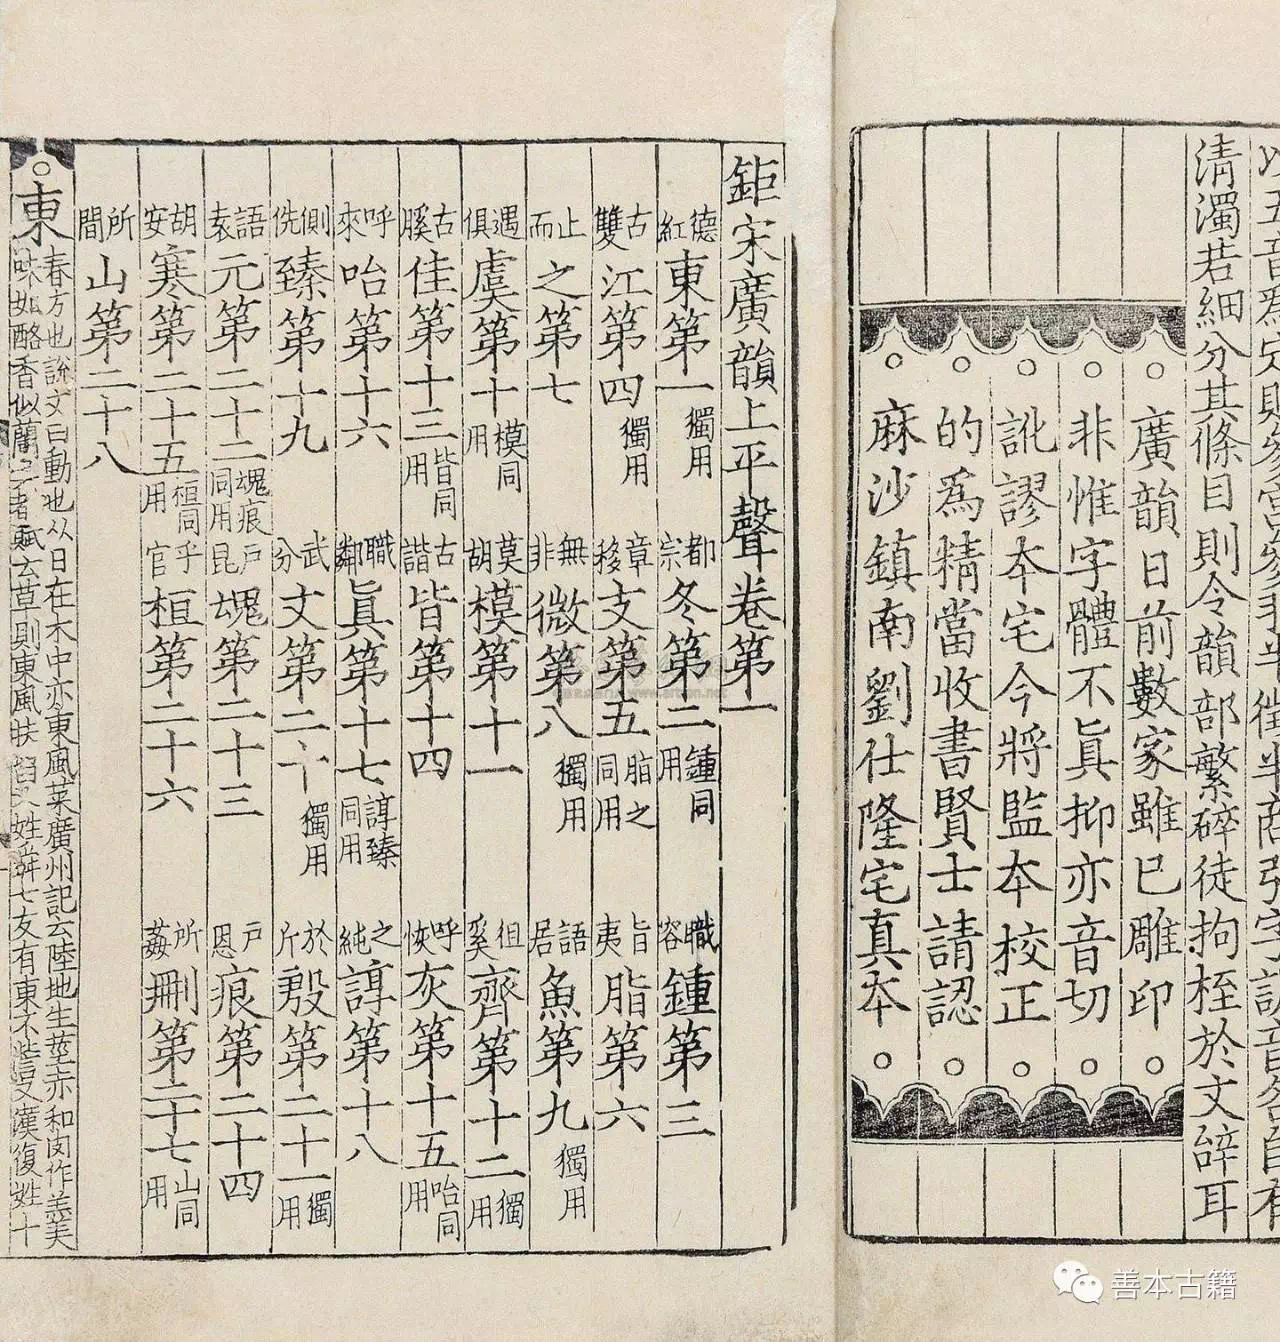 以五音爲定則參宮參羽半徵半商引字調音各自有
清濁若細分其條目則令韻部繁碎徒拘桎於文辭耳
廣韻日前數家雖已雕印
非惟字體不真抑亦音切
訛謬本宅今將監本校正
的爲精當收書賢士請認
麻沙鎮南劉仕隆宅真本
鉅宋廣韻上平聲卷第一
德紅東第一獨用 都宗冬第二鍾同用 職容鍾第三
古雙江第四獨用 章移支第五脂之同用 旨夷脂第六
止而之第七 無非微第八獨用 語居魚第九獨用
遇俱虞第十模同用 莫胡模第十一 徂奚齊第十二獨用
古膎佳第十三皆同用 古諧皆第十四 呼恢灰第十五咍同用
呼來咍第十六 職鄰眞第十七諄臻同用 之純諄第十八
側侁臻第十九 武分文第二十獨用 於斤殷第二十一獨用
語袁元第二十二魂痕同用 戶昆魂第二十三 戶恩痕第二十四
胡安寒第二十五桓同用 乎官桓第二十六 所姦刪第二十七山同用
所間山第二十八
東 春方也說文曰動也从日在木中亦東風菜廣州記云陸地生莖赤和肉作羹美
味如酪香似蘭賦云草則東風扶又姓舜七友有東不訾又漢復姓十
善本古籍